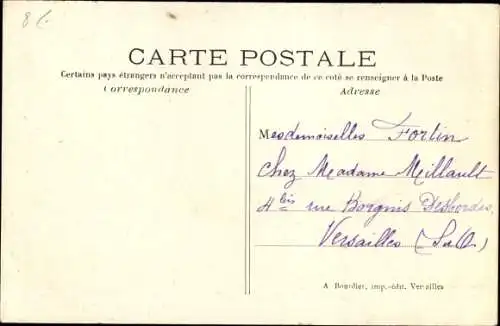 8 €
CARTE POSTALE
Certains pays étrangers n'acceptant pas la correspondance de ce coté se renseigner à la Poste
Correspondance
Adresse
Mesdemoiselles Fortin
Chez Madame Millault
4 bis rue Borgnis Desbordes
Versailles (S&O)
A Bourdier, imp.-édit. Versailles